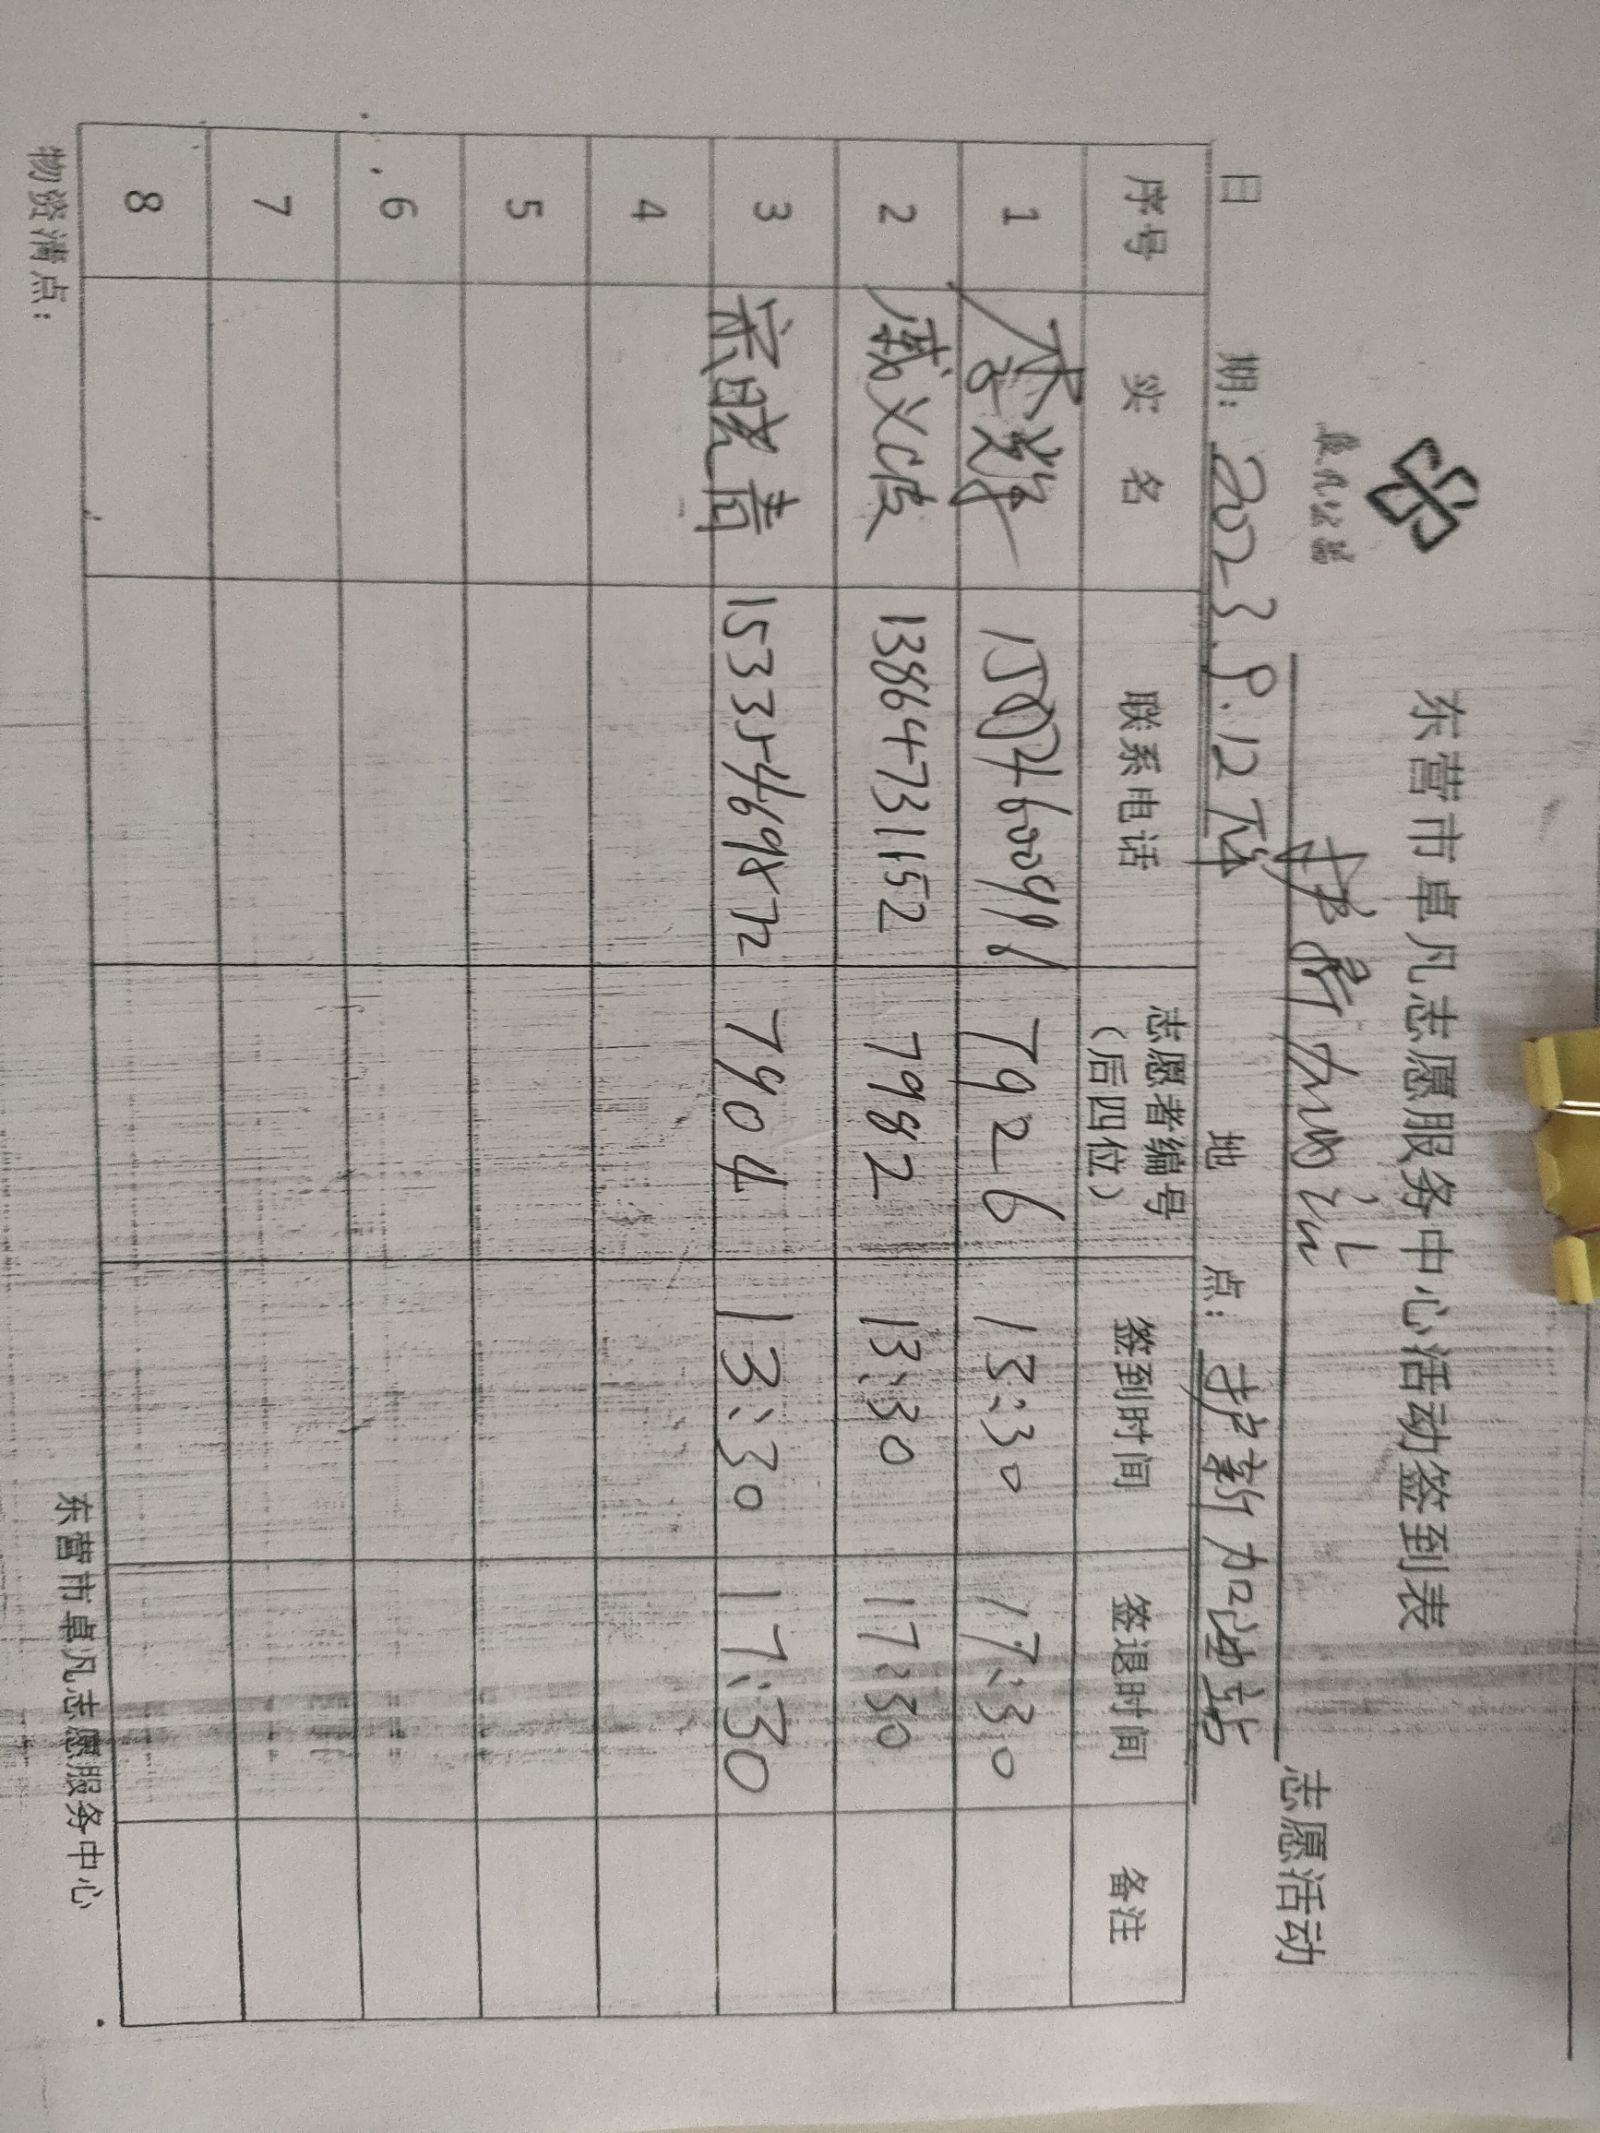 卓凡公益
东营市卓凡志愿服务中心活动签到表
护新加油站 志愿活动
日 期: 2023.9.12 下午 地 点: 护新加油站
序号 实 名 联系电话 志愿者编号（后四位） 签到时间 签退时间 备注
1 7926 13:30 17:30
2 戚义波 13864731152 7982 13:30 17:30
3 宗晓青 15335469872 7904 13:30 17:30
4
5
6
7
8
物资清点：
东营市卓凡志愿服务中心